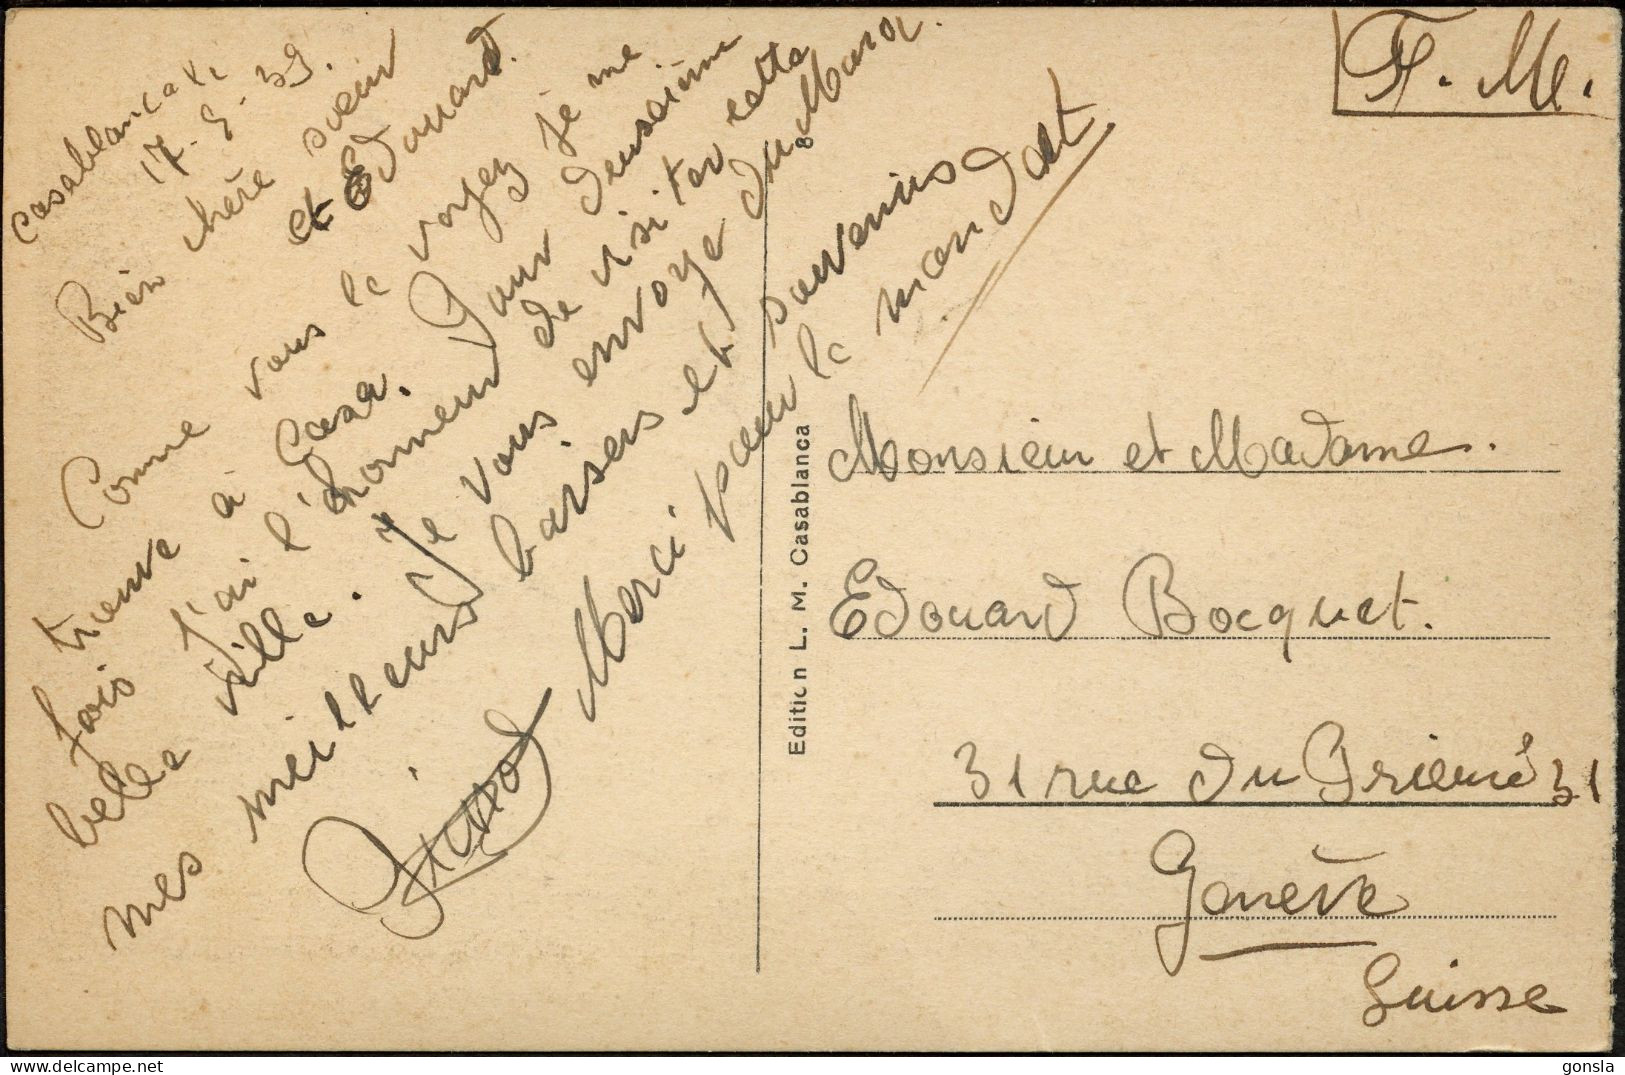 Casablanca le
17-5-39.
Bien chère soeur
et Edouard.
Comme vous le voyez je me
trouve à Casa. Pour deuxième
fois j'ai l'honneur de visiter cette
belle ville. Je vous envoye du Maroc.
mes meilleurs baisers et souvenirs
Merci pour le mandat.
F. M.
Edition L. M. Casablanca
8
Monsieur et Madame.
Edouard Bocquet.
31 rue du Prieuré 31
Genève
Suisse
gonsla